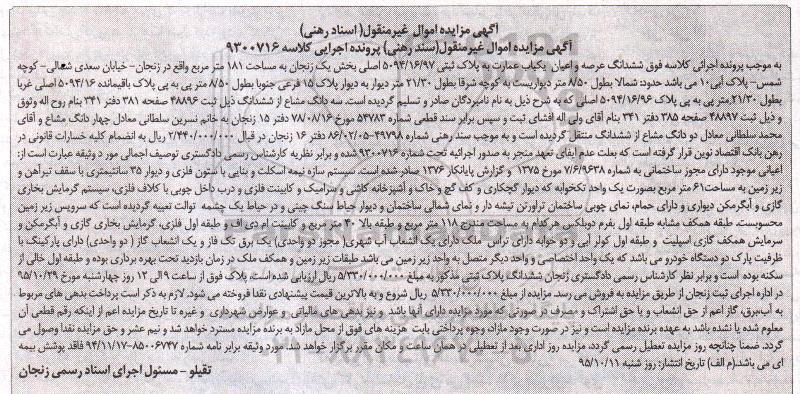 آگهی مزایده اموال غیرمنقول( اسناد رهنی)
آگهی مزایده اموال غیرمنقول(سند رهنی) پرونده اجرایی کلاسه ۹۳۰۰۷۱۶
به موجب پرونده اجرائی کلاسه فوق ششدانگ عرصه و اعیان یکباب عمارت به پلاک ثبتی ۵۰۹۴/۱۶/۹۷ اصلی بخش یک زنجان به مساحت ۱۸۱ متر مربع واقع در زنجان- خیابان سعدی شمالی- کوچه
شمس- پلاک آبی۱۰ می باشد حدود: شمالا بطول ۸/۵۰ متر دیواریست به کوچه شرقا بطول ۲۱/۳۰ متر دیوار به دیوار پلاک ۱۵ فرعی جنوبا بطول ۸/۵۰ متر پی به پی پلاک باقیمانده ۵۰۹۴/۱۶ اصلی غربا
بطول ۲۱/۳۰متر پی به پی پلاک ۵۰۹۴/۱۶/۹۶ اصلی که به شرح ذیل به نام نامبردگان صادر و تسلیم گردیده است. سه دانگ مشاع از ششدانگ ذیل ثبت ۴۸۸۹۶ صفحه ۳۸۱ دفتر ۳۴۱ بنام روح اله وثوق
و ذیل ثبت ۴۸۸۹۷ صفحه ۳۸۵ دفتر ۳۴۱ بنام آقای ولی اله افشای ثبت و سپس برابر سند قطعی شماره ۵۴۷۸۳ مورخ ۷۸/۰۸/۱۶ دفتر ۱۵ زنجان به خانم نسرین سلطانی معادل چهار دانگ مشاع و آقای
محمد سلطانی معادل دو دانگ مشاع از ششدانگ منتقل گردیده است و به موجب سند رهنی شماره ۴۹۷۹۸-۸۶/۰۲/۰۵ دفتر ۱۶ زنجان در قبال ۲/۴۴۰/۰۰۰/۰۰۰ ریال به انضمام کلیه خسارات قانونی در
رهن بانک اقتصاد نوین قرار گرفته است که بعلت عدم ایفای تعهد منجر به صدور اجرائیه تحت شماره ۹۳۰۰۷۱۶ شده و برابر نظریه کارشناس رسمی دادگستری توصیف اجمالی مورد وثیقه عبارت است از:
اعیانی موجود دارای مجوز ساختمانی به شماره ۷/۶/۹۶۳۸ مورخ ۱۳۷۵ و گزارش پایانکار ۱۳۷۶ صادر شده است. سیستم سازه نیمه اسکلت و بنایی با ستون فلزی و دیوار ۳۵ سانتیمتری با سقف تیرآهن و
زیر زمین به مساحت۶۱ متر مربع بصورت یک واحد تکخوابه که دیوار گچکاری و کف گچ و خاک و آشپزخانه کاشی و سرامیک و کابینت فلزی و درب داخل چوبی با کلاف فلزی، سیستم گرمایش بخاری
گازی و آبگرمکن دیواری و دارای حمام، نمای چوبی ساختمان تراورتن تیشه دار و نمای شمالی ساختمان و دیوار حیاط سنگ چینی و در حیاط یک چشمه توالت تعبیه گردیده است که سرویس زیر زمین
محسوبست. طبقه همکف مشابه طبقه اول بفرم دوبلکس هرکدام به مساحت مندرج ۱۱۸ متر مربع و طبقه بالا ۴۰ متر مربع و کابینت ام دی اف و طبقه اول فلزی، گرمایش بخاری گازی و آبگرمکن و
سرمایش همکف گازی اسپلیت و طبقه اول کولر آبی و دو خوابه دارای تراس ملک دارای یک انشعاب آب شهری( مجوز دو واحدی) یک برق تک فاز و یک انشعاب گاز ( دو واحدی) دارای پارکینگ با
ظرفیت پارک دو دستگاه خودرو می باشد که یک واحد اختصاصی و واحد دیگر متصل به واحد زیر زمین می باشد طبقات زیر زمین و همکف ملک در زمان بازدید تحت بهره برداری بوده و طبقه اول خالی از
سکنه بوده است و برابر نظر کارشناس رسمی دادگستری زنجان ششدانگ پلاک ثبتی مذکور به مبلغ ۵/۳۳۰/۰۰۰/۰۰۰ ریال ارزیابی شده است. پلاک فوق از ساعت ۹ الی ۱۲ روز چهارشنبه مورخ ۹۵/۱۰/۲۹
در اداره اجرای ثبت زنجان از طریق مزایده به فروش می رسد. مزایده از مبلغ ۵/۳۳۰/۰۰۰/۰۰۰ ریال شروع و به بالاترین قیمت پیشنهادی نقدا فروخته می شود. لازم به ذکر است پرداخت بدهی های مربوط
به آب،برق، گاز اعم از حق انشعاب و یا حق اشتراک و مصرف در صورتی که مورد مزایده دارای آنها باشد و نیز بدهی های مالیاتی و عوارض شهرداری و غیره تا تاریخ مزایده اعم از اینکه رقم قطعی آن
معلوم شده یا نشده باشد به عهده برنده مزایده است و نیز در صورت وجود مازاد وجوه پرداختی بابت هزینه های فوق از محل مازاد به برنده مزایده مسترد خواهد شد و نیم عشر و حق مزایده نقدا وصول می
گردد. ضمنا چنانچه روز مزایده تعطیل رسمی گردد، مزایده روز اداری بعد از تعطیلی در همان ساعت و مکان مقرر برگزار خواهد شد. مورد وثیقه برابر نامه شماره ۸۵۰۰۶۷۴۷-۹۴/۱۱/۱۷ فاقد پوشش بیمه
ای می باشد.(م الف) تاریخ انتشار: روز شنبه ۹۵/۱۰/۱۱
تقیلو - مسئول اجرای اسناد رسمی زنجان